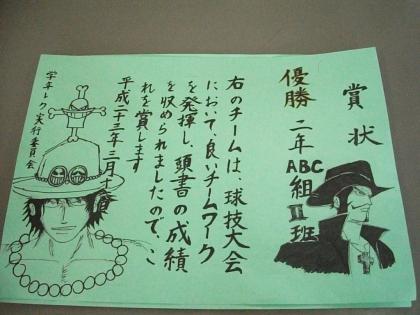 賞状
優勝 二年ABC組Ⅱ班
右のチームは、球技大会
において、良いチームワーク
を発揮し、頭書の成績
を収められましたので、こ
れを賞します
平成二十三年三月十
学年レク実行委員会